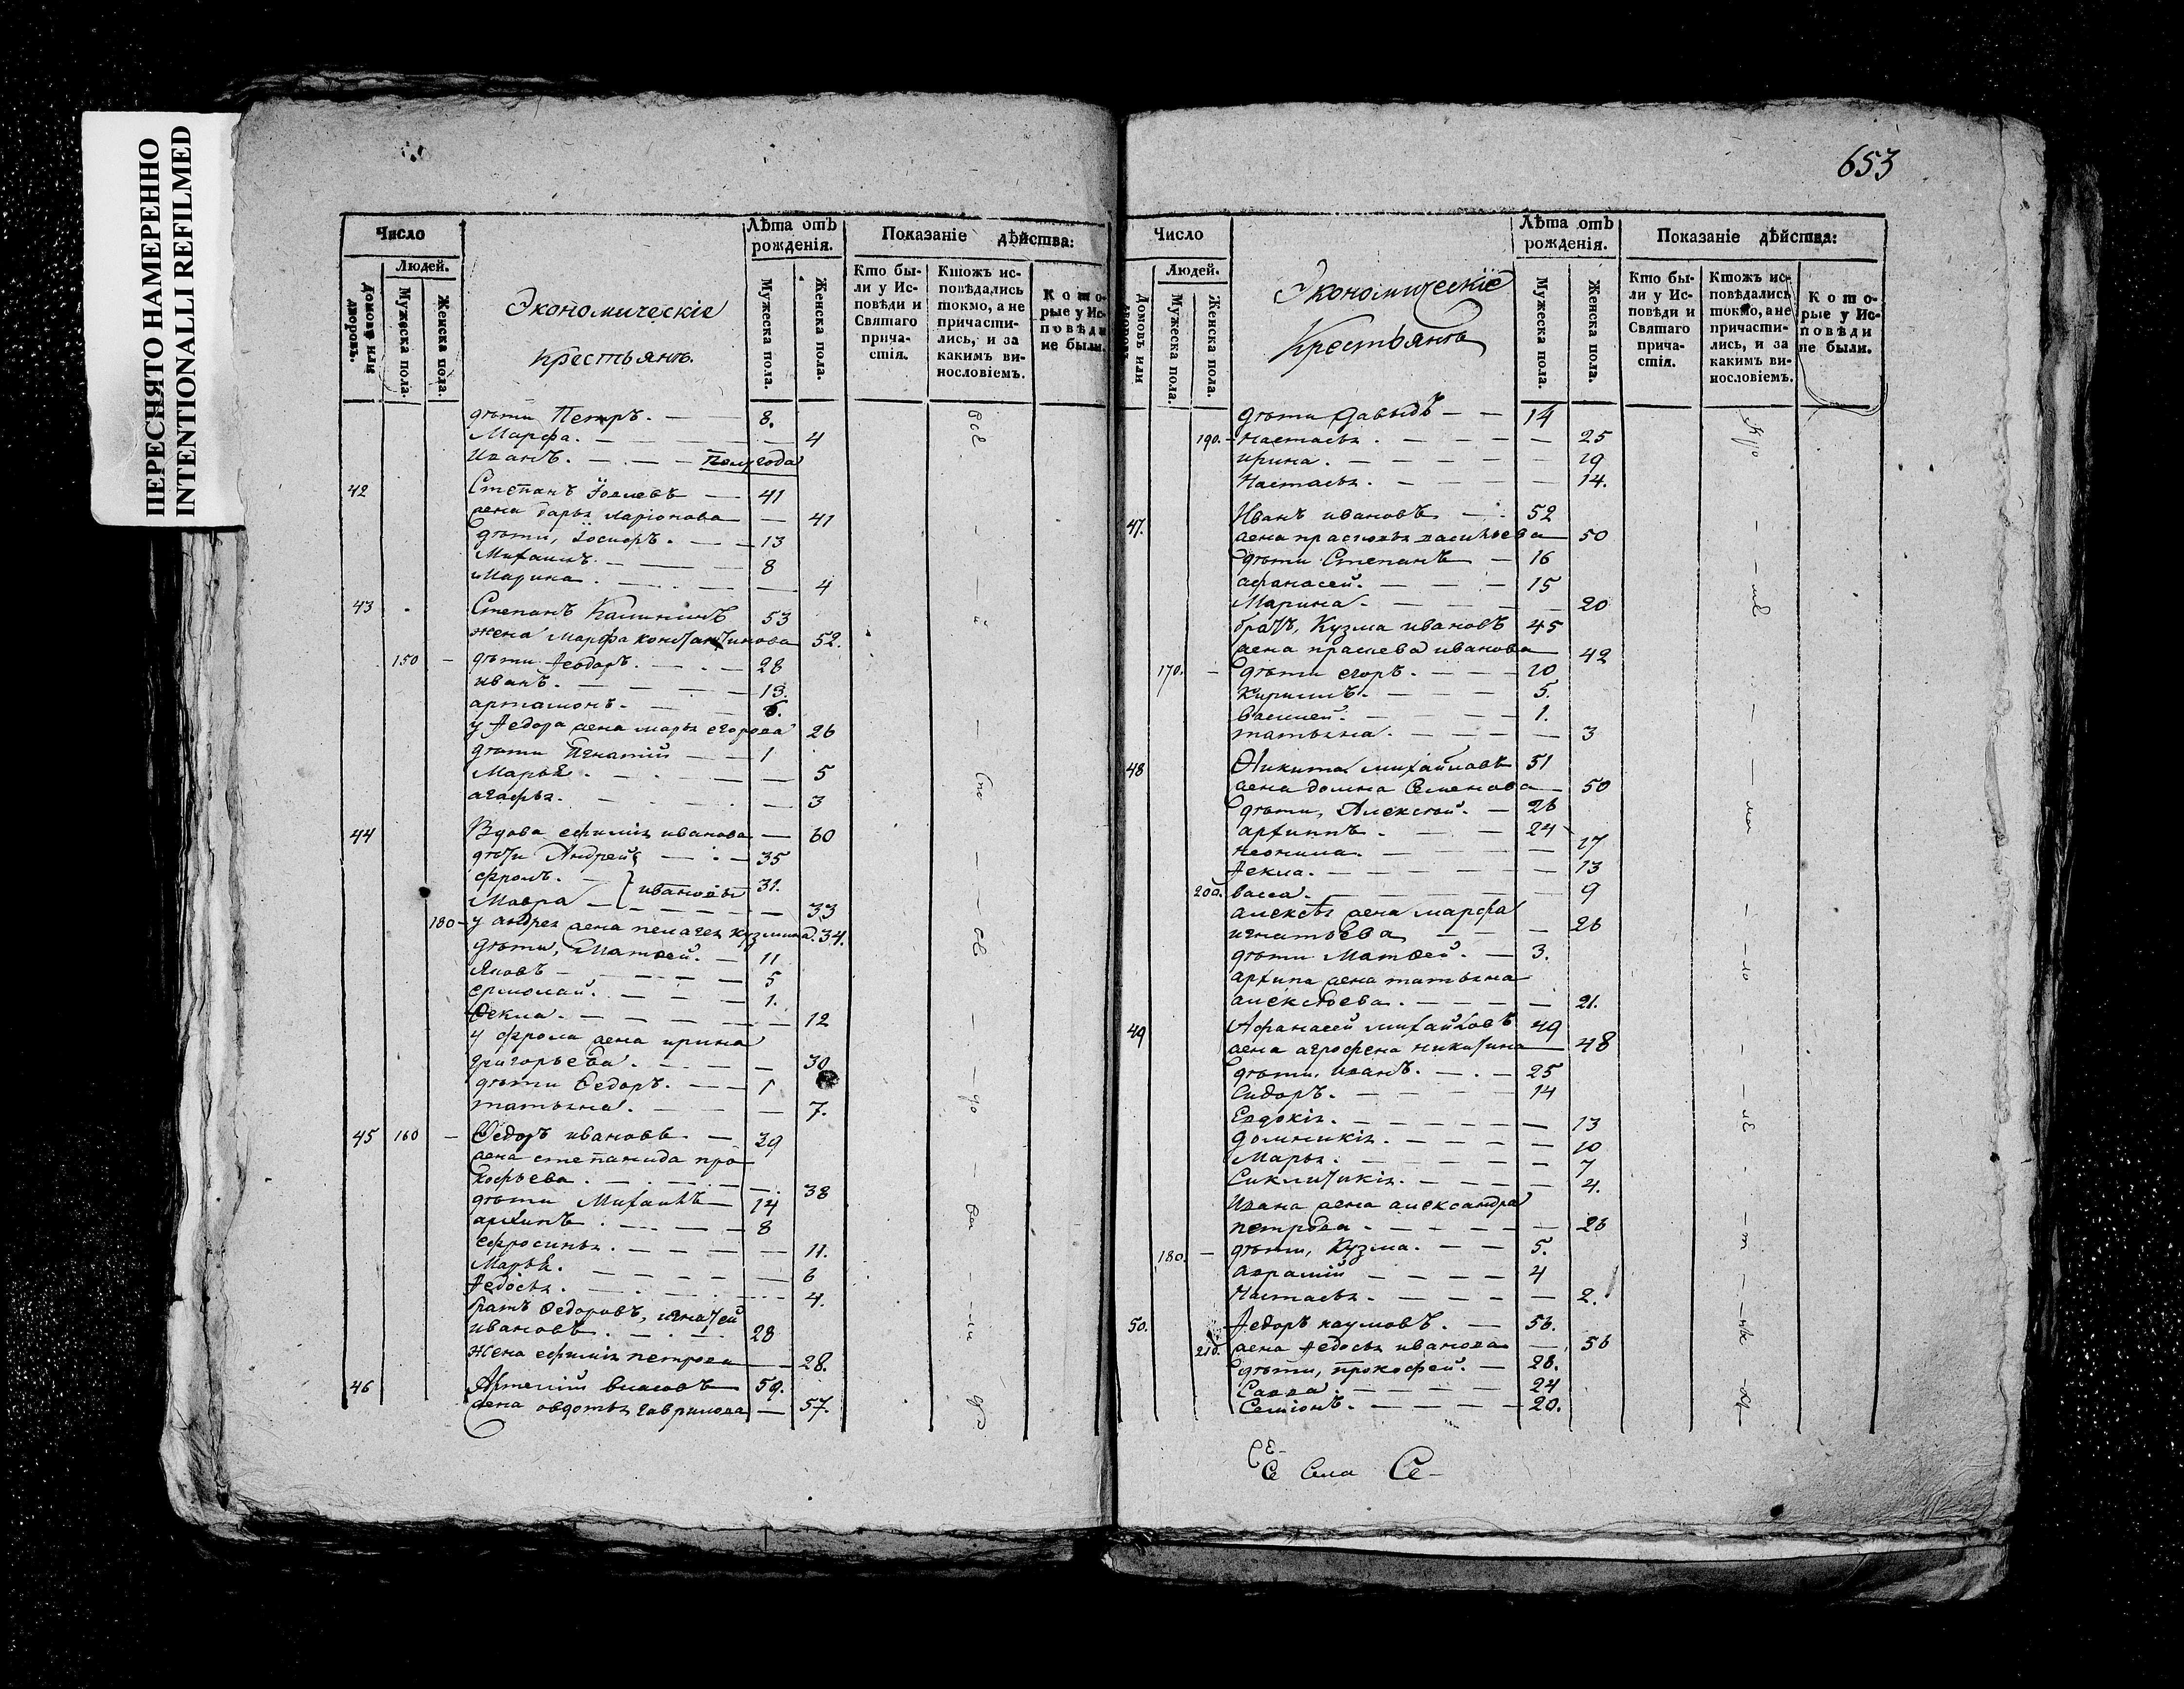 ПЕРЕСНЯТО НАМЕРЕННО
INTENTIONALLI REFILMED
Число
Людей.
Домовъ или дворовъ.
Мужеска пола
Женска пола
Экономическіе
крестьянъ.
Лѣта отъ рожденія.
Мужеска пола.
Женска пола.
Показаніе дѣйства:
Кто были у Исповѣди и Святаго причастія.
Ктожъ исповѣдались токмо, а не причастились, и за какимъ винословіемъ.
Которые у Исповѣди не были.
дѣти Петръ. — 8.
Марфа. — 4
Иванъ. — Полугода
42 Степанъ 41
жена дарья ларіонова — 41
дѣти, — 13
Михаилъ. — 8
Марина. — 4
43 Степанъ Калининъ 53
жена Марфа константинова 52.
150 — дѣти Ѳеодоръ. — 28
иванъ. — 13.
артамонъ. — 6.
у Ѳедора жена марья егорова 26
дѣти Игнатій — 1
Марья. — 5
агафья. — 3
44 Вдова ефимія иванова — 60
дѣти Андрей — 35
фролъ. — ивановы 31.
Мавра — 33
180 — у андрея жена пелагея кузмина. 34.
дѣти, Матвей. — 11
Яковъ — 5
ермолай. — 1.
Ѳекла. — 12
у фрола жена ирина
григорьева. — 30
дѣти Ѳедоръ. — 1
татьяна. — 7.
45 160 — Ѳедоръ ивановъ. — 39
жена степанида про
кофьева. — 38
дѣти Михаилъ — 14
архипъ. — 8
ефросинья. — 11.
Марья. — 6
Ѳедосья. — 4.
братъ Ѳедоровъ, игнатей
ивановъ. — 28
жена ефимія петрова — 28.
46 Артемій власовъ 59.
жена овдотья гаврилова — 57.
653
Число
Людей.
Домовъ или дворовъ
Мужеска пола.
Женска пола.
Экономическіе
Крестьянъ
Лѣта отъ рожденія.
Мужеска пола.
Женска пола.
Показаніе дѣйства:
Кто были у Исповѣди и Святаго причастія.
Ктожъ исповѣдались токмо, а не причастились, и за какимъ винословіемъ.
Которые у Исповѣди не были.
дѣти Давыдъ — 14
190. — Настасья. — 25
ирина. — 19
Настасья. — 14.
47. Иванъ ивановъ — 52
жена васильева — 50
дѣти Степанъ — 16
афанасей. — 15
Марина. — 20
братъ, Кузма ивановъ 45
жена иванова — 42
170. — дѣти егоръ. — 10
Кирилъ. — 5.
василей. — 1.
татьяна. — 3
48 Никита михайловъ 51
жена домна Семенова — 50
дѣти, Алексѣй. — 26
архипъ. — 24
неонила. — 17
Ѳекла. — 13
200. васса. — 9
алексѣя жена марфа
игнатьева — 26
дѣти Матвей. — 3.
архипа жена татьяна
алексѣева. — 21.
49 Афанасей михайловъ 49
жена агрофена никитина — 48
дѣти, иванъ. — 25
Сидоръ. — 14
Евдокія. — 13
домникія. — 10
Марья. — 7
Синклитикія. — 4.
Ивана жена александра
петрова — 26
180. — дѣти, Кузма. — 5.
аврамій — 4
Настасья. — 2.
50. Ѳедоръ наумовъ. — 56.
210. жена Ѳедосья иванова — 56
дѣти, прокофей. — 28.
Савва. — 24
Семіонъ. — 20.
Села Се-